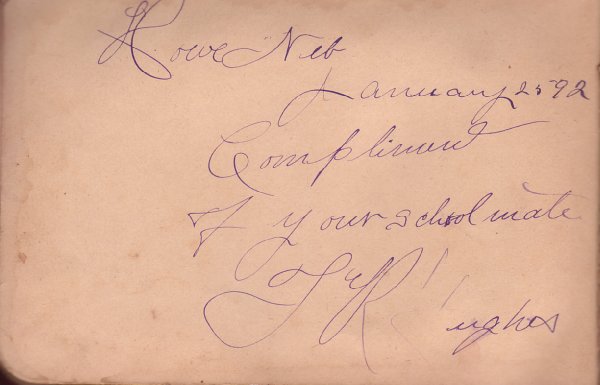 Howe Neb
January 25 92
Compliment
of your schoolmate
Hughes